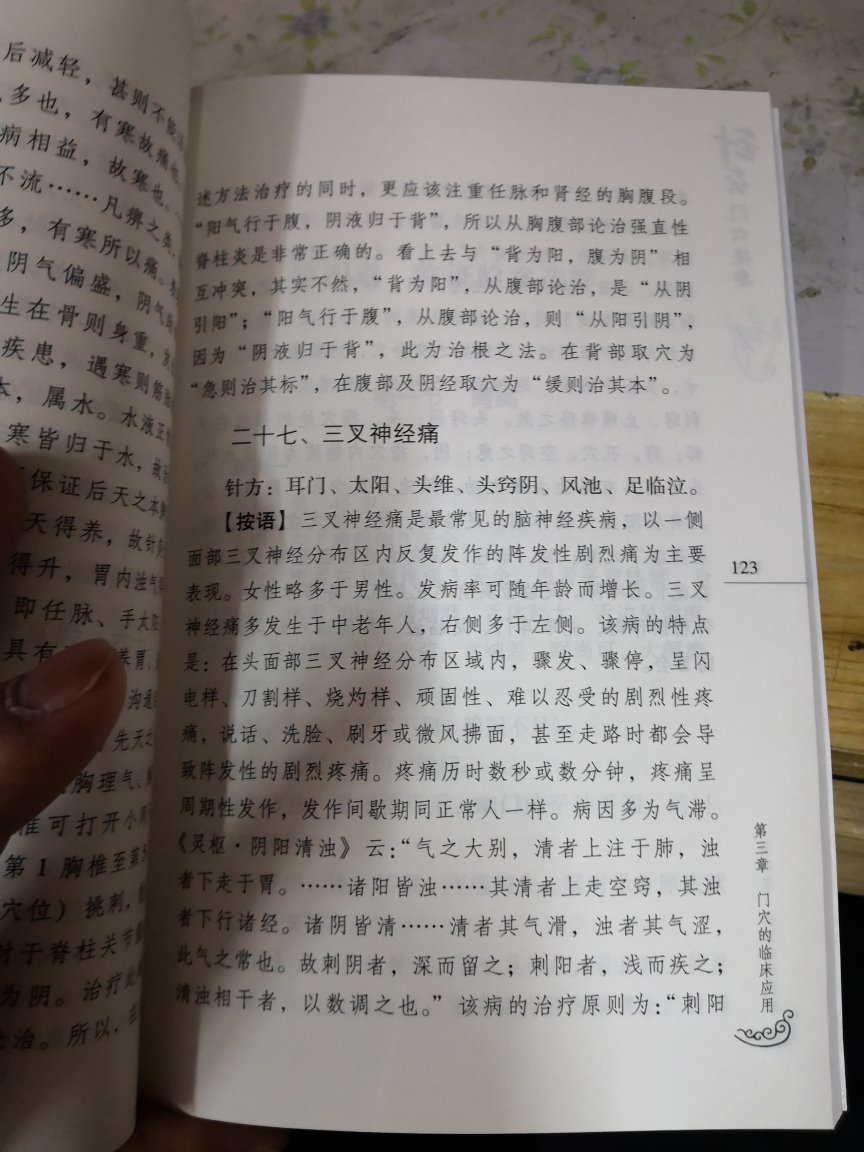 后减轻，甚则不能
多也，有寒故痛也
病相益，故寒也。
不流……凡痹之类
多，有寒所以痛。
阴气偏盛，阴气
生在骨则身重，发
疾患，遇寒则筋
本，属水。水液正
寒皆归于水，故
保证后天之本
天得养，故针刺
得升，胃内浊气
即任脉、手太阴
具有
养胃、
沟通
先天之
胸理气。
可打开小周
第1胸椎至第
穴位）挑刺，
对于脊柱关节
为阴。治疗此
论治。所以，在
述方法治疗的同时，更应该注重任脉和肾经的胸腹段。
“阳气行于腹，阴液归于背”，所以从胸腹部论治强直性
脊柱炎是非常正确的。看上去与“背为阳，腹为阴”相
互冲突，其实不然，“背为阳”，从腹部论治，是“从阴
引阳”；“阳气行于腹”，从腹部论治，则“从阳引阴”，
因为“阴液归于背”，此为治根之法。在背部取穴为
“急则治其标”，在腹部及阴经取穴为“缓则治其本”。
二十七、三叉神经痛
针方：耳门、太阳、头维、头窍阴、风池、足临泣。
【按语】三叉神经痛是最常见的脑神经疾病，以一侧
面部三叉神经分布区内反复发作的阵发性剧烈痛为主要
表现。女性略多于男性。发病率可随年龄而增长。三叉
神经痛多发生于中老年人，右侧多于左侧。该病的特点
是：在头面部三叉神经分布区域内，骤发、骤停，呈闪
电样、刀割样、烧灼样、顽固性、难以忍受的剧烈性疼
痛，说话、洗脸、刷牙或微风拂面，甚至走路时都会导
致阵发性的剧烈疼痛。疼痛历时数秒或数分钟，疼痛呈
周期性发作，发作间歇期同正常人一样。病因多为气滞。
《灵枢·阴阳清浊》云：“气之大别，清者上注于肺，浊
者下走于胃。……诸阳皆浊……其清者上走空窍，其浊
者下行诸经。诸阴皆清……清者其气滑，浊者其气涩，
此气之常也。故刺阴者，深而留之；刺阳者，浅而疾之；
清浊相干者，以数调之也。”该病的治疗原则为：“刺阳
123
第三章 门穴的临床应用